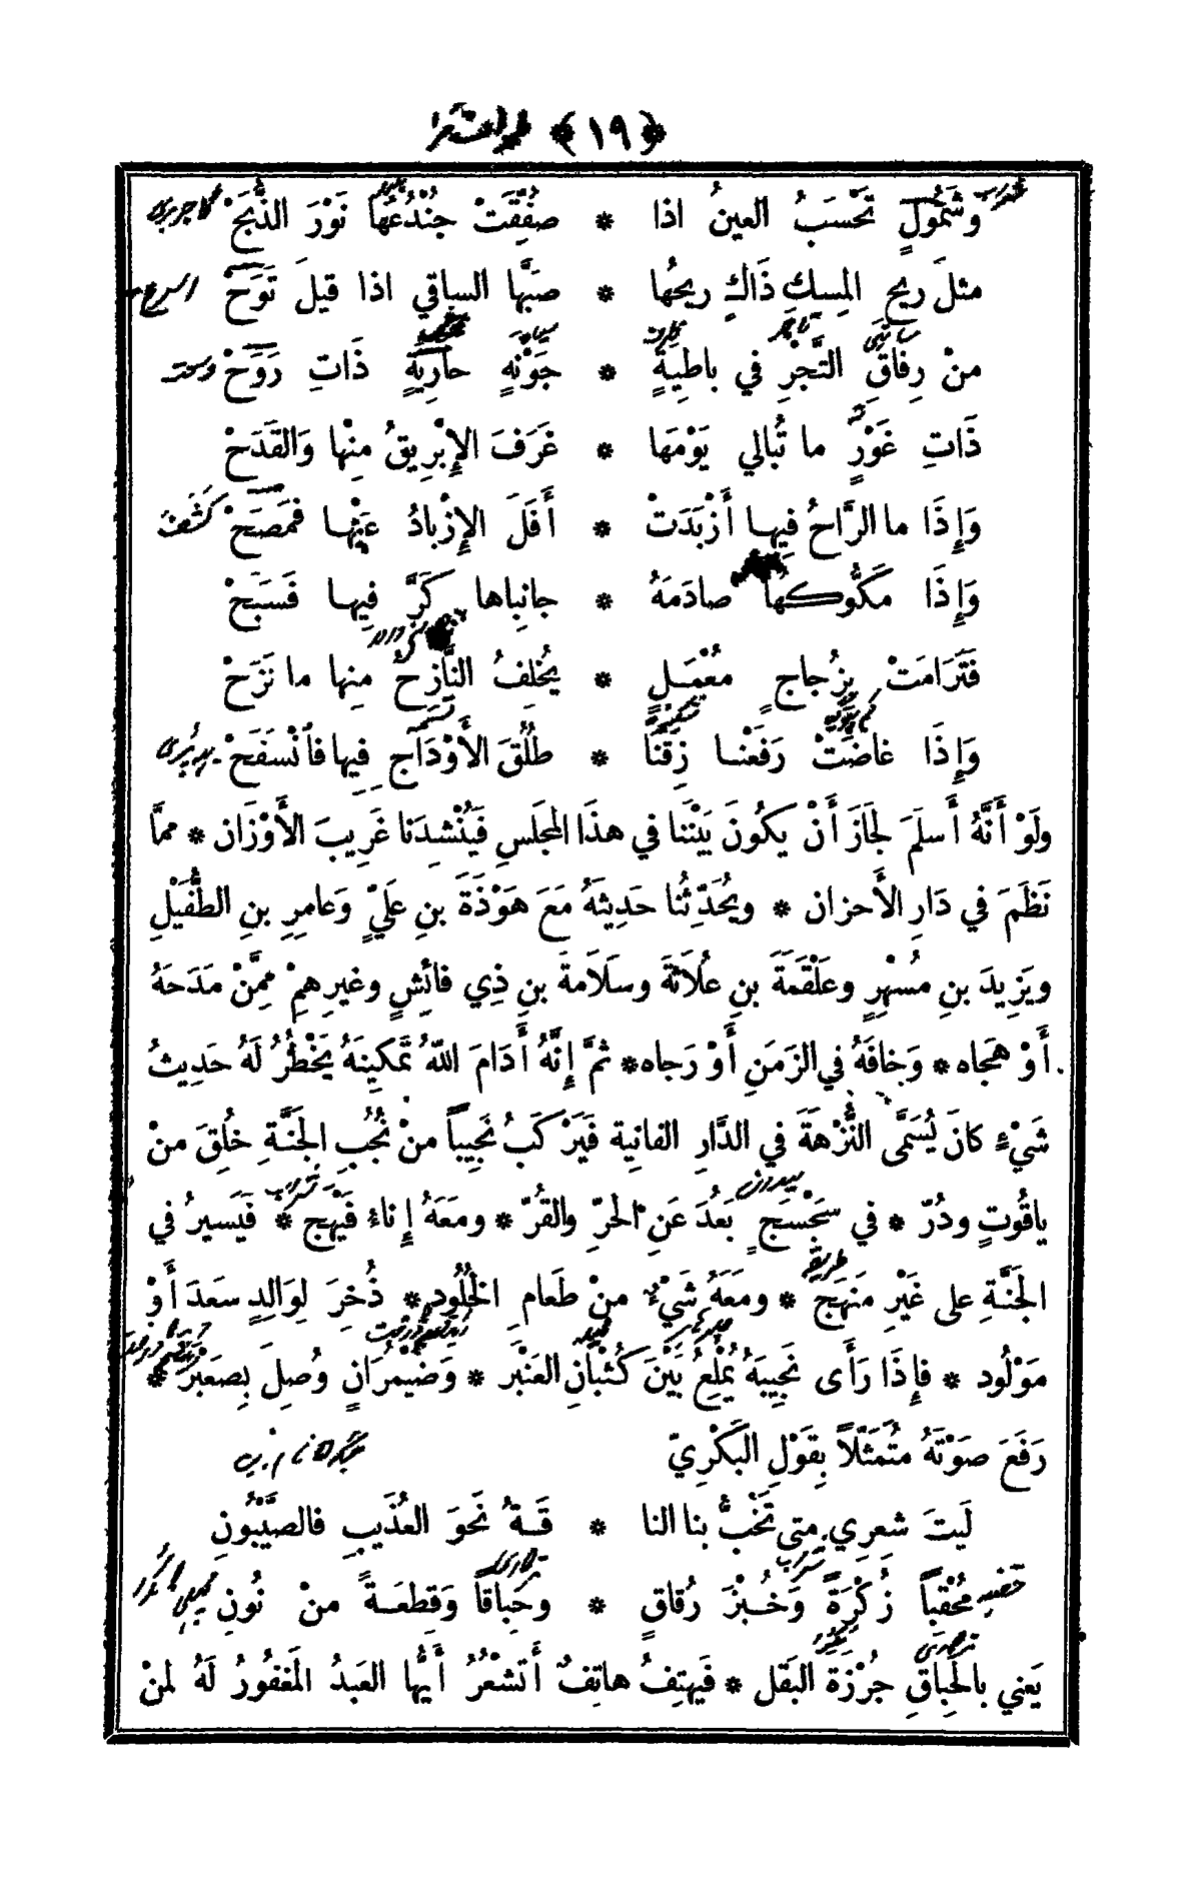 ﴿ ١٩ ﴾
وشَمُولٍ تَحْسَبُ العينُ اذا * صفِّقَتْ جُنْدُعُهَا نَوْرَ الذُّبَحْ
مثلَ ريحِ المِسكِ ذَاكٍ ريحُها * صبَّها الساقي اذا قيلَ تَوَحْ
منْ رِفَاقِ التَّجْرِ في باطِيةٍ * جَوْنةٍ حارِيّةٍ ذَاتِ رَوَحْ
ذَاتِ غَوْرٍ ما تُبالي يَوْمَهَا * غَرَفَ الإِبْرِيقُ مِنْها وَالقَدَحْ
وَإِذَا ما الرَّاحُ فِيها أَزْبَدَتْ * أَفَلَ الإِزْبادُ عَنْها فمَصَحْ
وَإِذَا مَكُّوكها صادَمَهُ * جانِباها كَرَّ فِيها فَسَبَحْ
فَتَرَامَتْ بِزُجاجٍ مُعْمَلٍ * يُخلِفُ النَّازِحُ مِنها ما نَزَحْ
وَإِذَا غاضَتْ رَفَعْنا زِقَّنَا * طُلُقَ الأَوْدَاجِ فِيها فانْسَفَحْ
ولَوْ أَنَّهُ أَسلَمَ لجَازَ أَنْ يكُونَ بَيْنَنا في هذَا المجلَسِ فَيُنْشِدَنا غَرِيبَ الأَوْزَان * ممَّا
نَظَمَ في دَارِ الأَحزان * ويُحَدِّثُنا حَدِيثَهُ مَعَ هَوْذَةَ بنِ عَلَيٍّ وَعامرِ بنِ الطُّفَيْلِ
ويَزِيدَ بنِ مُسْهِرٍ وعَلْقَمَةَ بنِ عُلاَثَةَ وسلاَمةَ بنِ ذِي فائِشٍ وغيرِهِمْ مِمَّنْ مَدَحَهُ
أَوْ هَجاه * وَخافَهُ في الزمَنِ أَوْ رَجاه * ثمَّ إِنَّهُ أَدَامَ اللهُ تَمكينَهُ يَخْطُرُ لَهُ حَدِيثُ
شَيْءٍ كانَ يُسَمَّى النُّزْهَةَ في الدَّارِ الفانِية فَيَرْكَبُ نَجِيباً منْ نُجُبِ الجَنَّةِ خُلِقَ منْ
ياقُوتٍ ودُرّ * في سَجْسَجٍ بَعُدَ عَنِ الحَرِّ والقُرّ * ومعَهُ إِناءُ فَيْهَج * فَيَسيرُ في
الجَنَّةِ على غَيْرِ مَنهَج * ومعَهُ شَيْءٌ منْ طَعامِ الخُلُود * ذُخِرَ لِوَالِدٍ سعَدَ أَوْ
مَوْلُود * فإِذَا رَأَى نَجِيبَهُ يُمْلِعُ بَيْنَ كُثْبانِ العَنْبَر * وَضَيْمُرَانٍ وُصِلَ بِصَعبْرَ *
رَفَعَ صَوْتَهُ مُتَمَثّلاً بِقَوْلِ البَكْرِيّ
لَيتَ شعرِي متى تَخُبُّ بنا النا * قَةُ نَحوَ العُذَيبِ فالصيّبُونِ
مُحْقِباً زُكْرَةً وَخُبْزَ رُقاقٍ * وحَباقاً وَقِطعَةً منْ نُونِ
يَعني بالحَباقِ جُرْزةَ البَقل * فَيهتِفُ هاتِفٌ أَتشْعُرُ أَيُّها العَبدُ المَغفُورُ لَهُ لمنْ